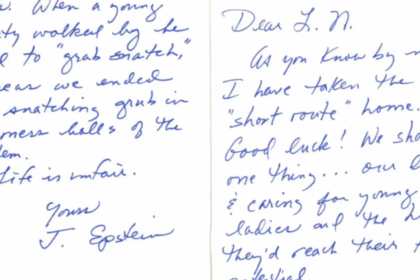 When a young
uty walked by he
d to "grab snatch,"
ear we ended
snatching grub in
mess halls of the
em.
Life is unfair.
Yours
J. Epstein
Dear L. N.
As you know by n
I have taken the
"short route" home.
Good luck! We sha
one thing... our l
& caring for young
ladies and the h
they'd reach their
potential